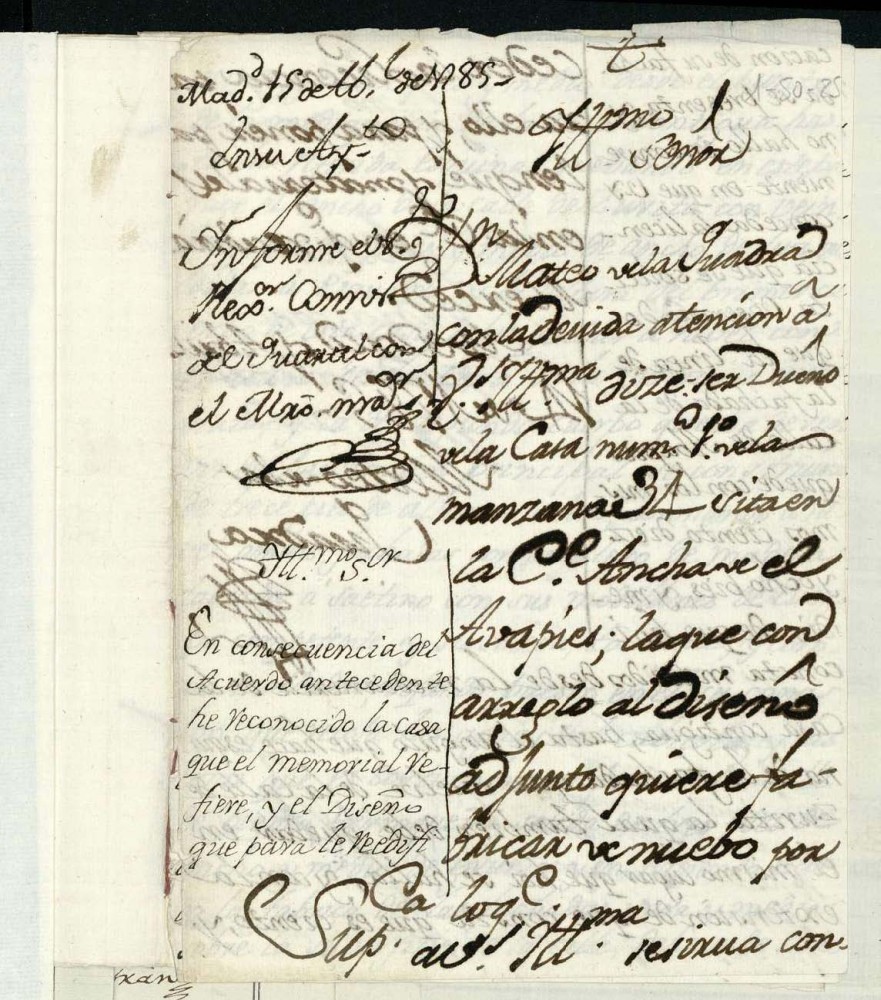 Mad.d 15 de Ab.l de 1785-
En su Ay.to
Informe el S.or
Rexor. Comis.
del Quartel con
el Mro. mayor
Ill.mo S.or
En consecuencia del
Acuerdo antecedente
he reconocido la casa
que el memorial re-
fiere, y el Diseño
que para le reedifi
Yllmo
Señor
Mateo de la Quadra
con la devida atencion a
V.S. Yllma dize ser Dueño
de la Casa num.o 1.o de la
manzana 34 sita en
la C.e Ancha de el
Avapies; la que con
arreglo al diseño
adjunto quiere fa-
bricar de nuebo por
lo q.e
Sup.ca a V.S. Ill.ma se sirva con